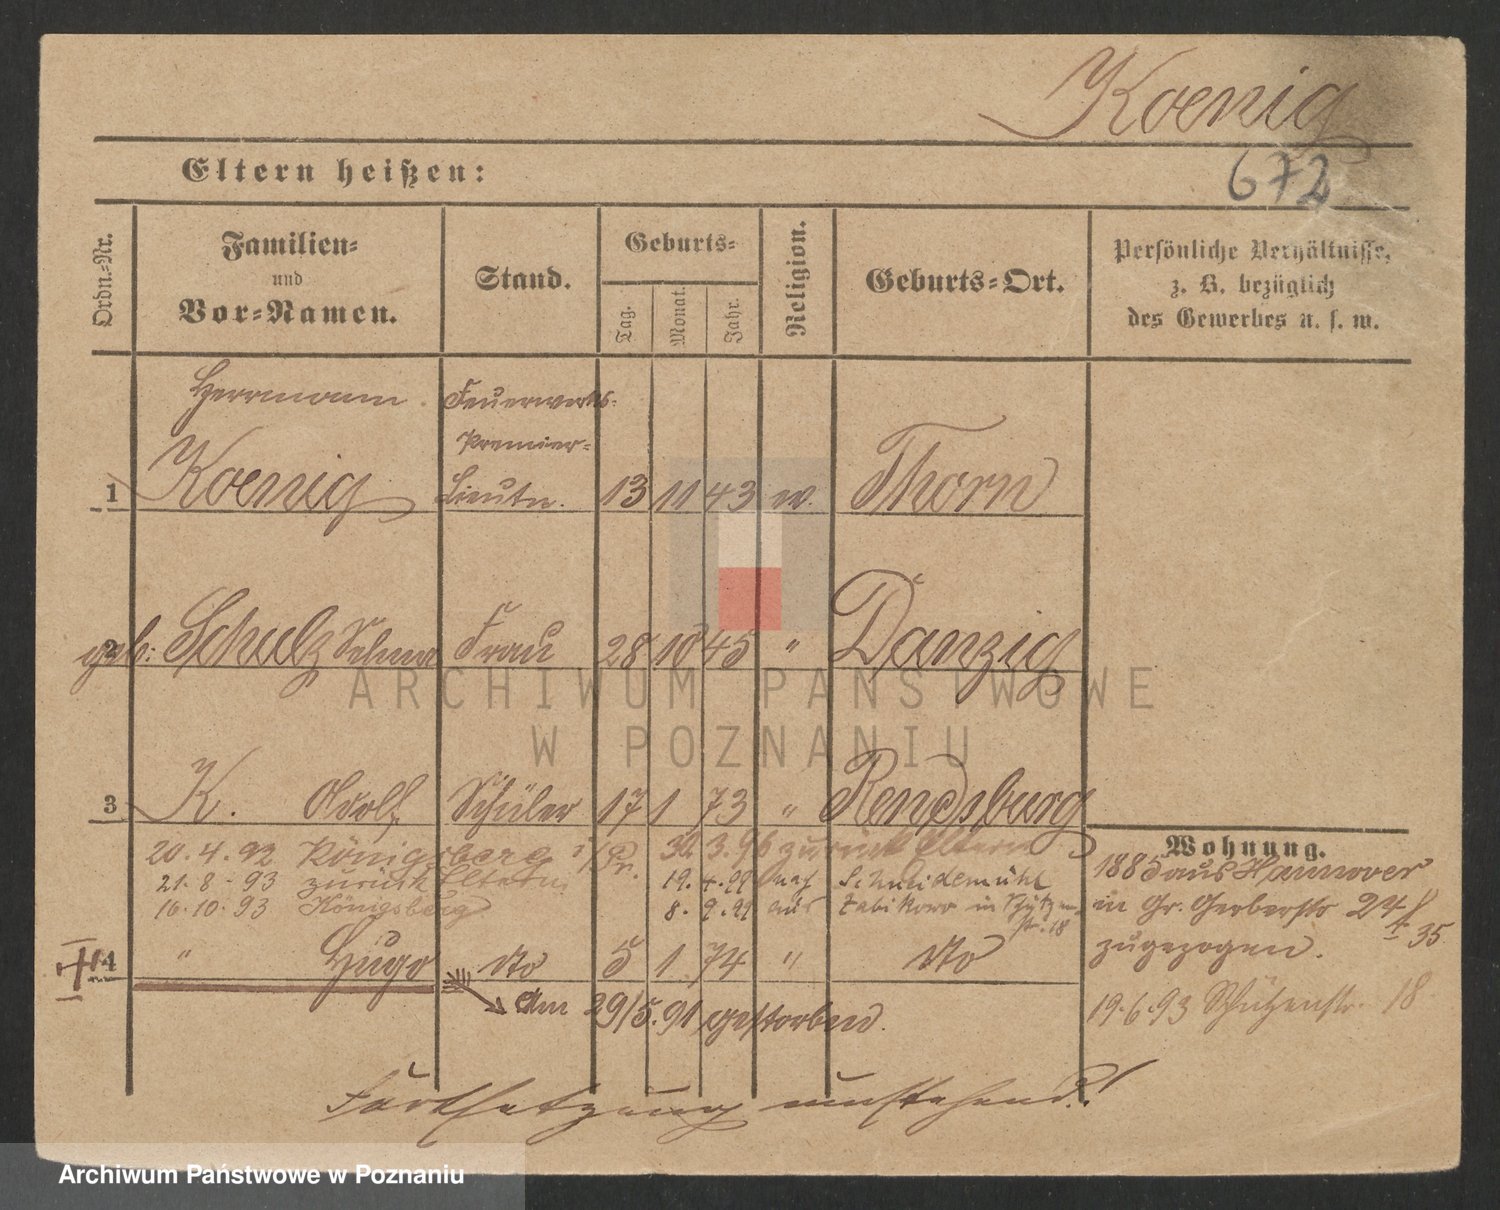 Koenig
672
Eltern heißen:
Ordn.-Nr.
Familien-
und
Vor-Namen.
Stand.
Geburts-
Tag.
Monat.
Jahr.
Religion.
Geburts-Ort.
Persönliche Verhältnisse,
z. B. bezüglich
des Gewerbes u. s. w.
Herrmann Feuerwerks-
Premier-
1 Koenig Lieutn. 13 11 43 ev. Thorn
2 geb: Schulz Selma Frau 28 10 45 " Danzig
ARCHIWUM PAŃSTWOWE
W POZNANIU
3 K. Adolf Schüler 17 1 73 " Rendsburg
20.4.92 Königsberg i/Pr. 30.3.96 zurück Eltern
21.8.93 zurück Eltern. 19.4.99 nach Schneidemühl
16.10.93 Königsberg 8.9.99 aus Zabikowo in Schützen
str. 18
4 " Hugo dto 5 1 74 " dto
Am 29/5.91 gestorben.
Wohnung.
1885 aus Hannover
in Gr. Gerberstr 24
35
zugezogen.
19.6.93 Schützenstr. 18
Fortsetzung umstehend!
Archiwum Państwowe w Poznaniu